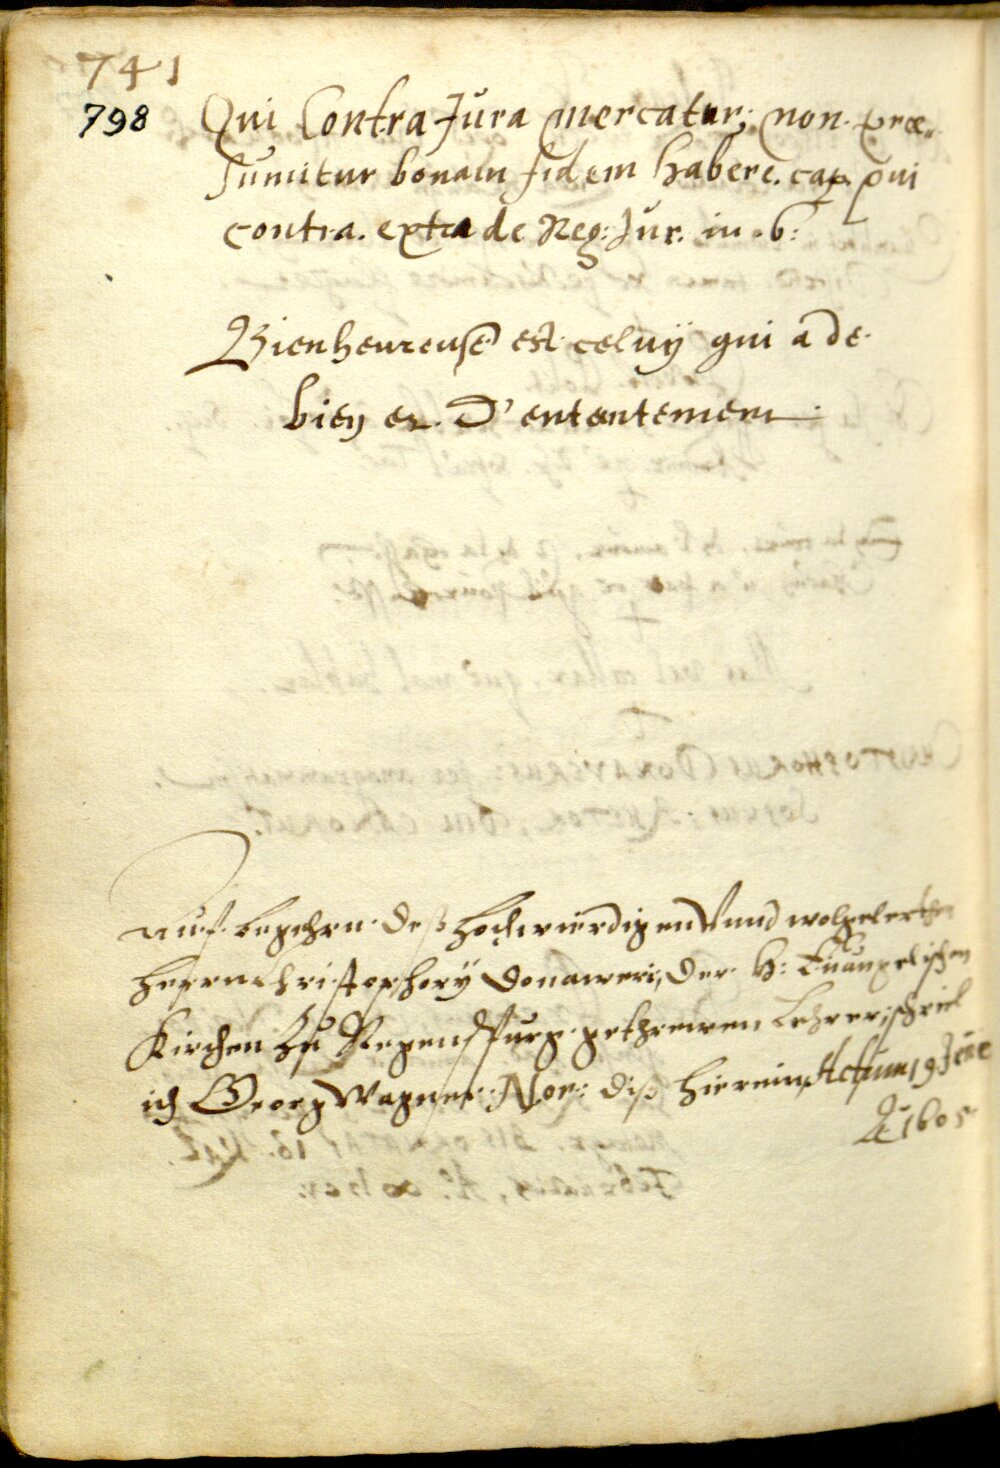 741
798 Qui Contra Jura mercatur; non præ„
sumitur bonam fidem habere. cap. qui
contra. extra de Reg: Jur. in. 6:
Bienheureuse est celuÿ qui a de
bien et D'ententement.
Auf begehrn deß Hochwierdigen Vnnd wolgelerthen
Herrn Christophorÿ Donaweri, der H: Euangelischen
Kirchen Zu Regenspurg gethrewen Lehrer, schrieb
ich Georg Wagner. Nor: diß hierein, Actum 19
A 1605